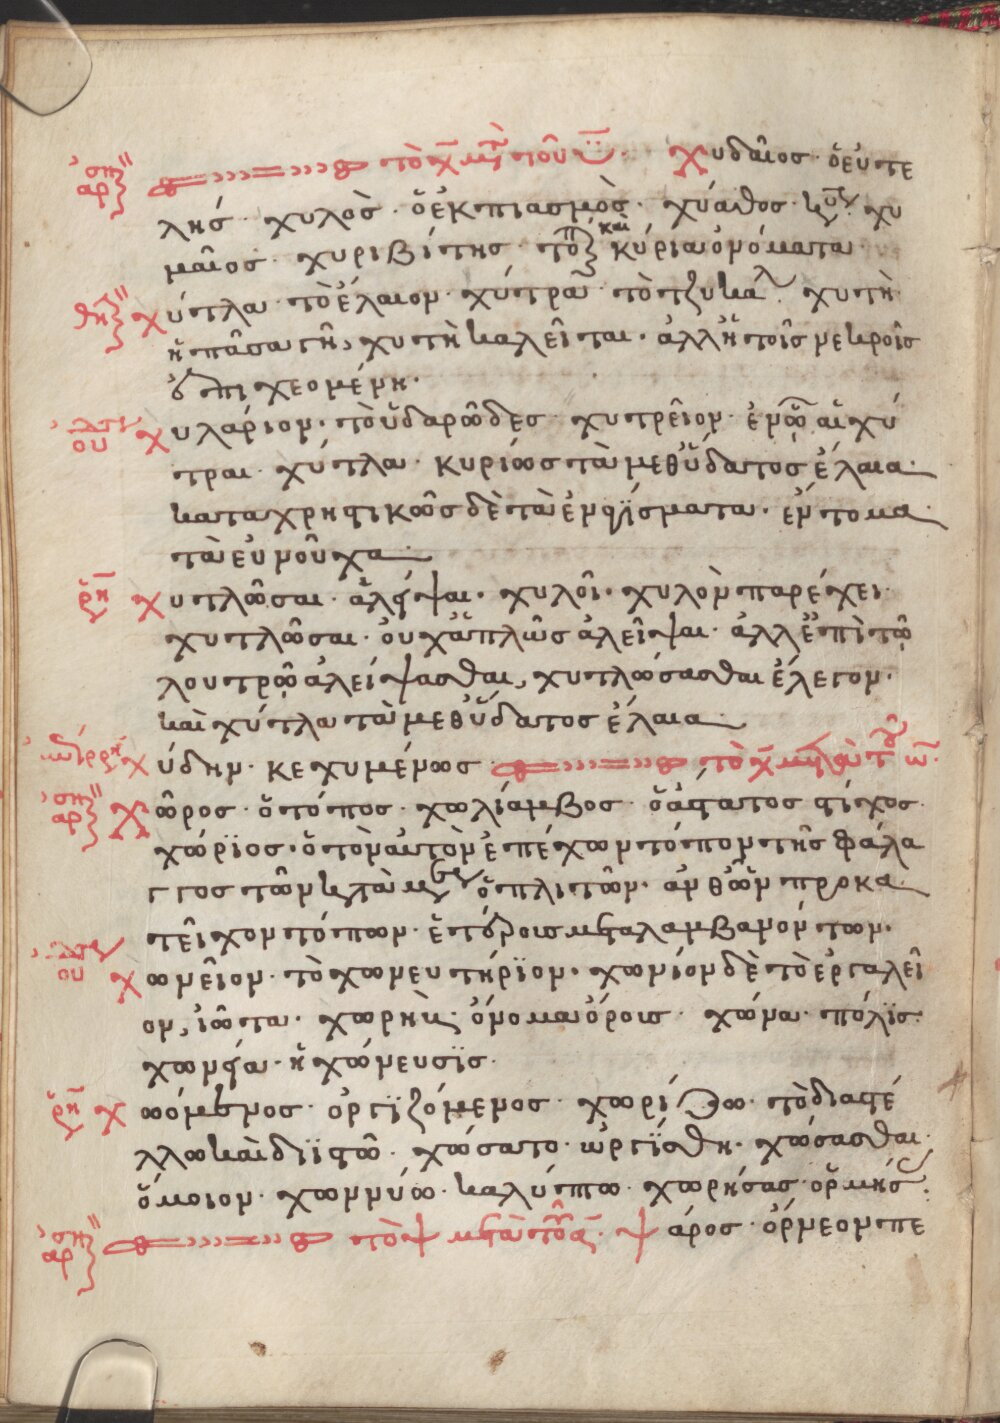 ἀρσ τὸ χ̄ μετὰ τοῦ ῡ. Χυδαῖος· ὁ εὐτε
λής· χυλὸς· ὁ ἐκπιασμὸς· χύαθος· χυ
μαῖος· χυριβίτης· καὶ κύρια ὀνόματα
θη χύτλα· τὸ ἔλαιον· χύτρα· τὸ τζυκαλ· χυτὴ
ἡ πᾶσα γῆ, χυτὴ καλεῖται· ἀλλ' ἡ τοῖς νεκροῖς
ἐπιχεομένη·
ου χυλάριον· τὸ ὑδαρῶδες· χυτρεῖον· ἐν ᾧ αἱ χύ
τραι· χύτλα· κυρίως τὰ μεθ' ὕδατος ἔλαια·
καταχρηστικῶς δὲ τὰ ἐγχύσματα· ἔντομα·
τὰ εὐνοῦχα
ῥη χυτλῶσαι· ἀλεῖψαι· χυλοῖ· χυλὸν παρέχει·
χυτλῶσαι· οὐχ ἁπλῶς ἀλεῖψαι· ἀλλ' ἐπὶ τῷ
λουτρῷ ἀλείψασθαι, χυτλώσασθαι ἔλεγον·
καὶ χύτλα τὰ μεθ' ὕδατος ἔλαια
ἐπίρρη χύδην· κεχυμένως· τὸ χ̄ μετὰ τοῦ ω̄·
ἀρσ Χῶρος· ὁ τόπος· χωλίαμβος· ὁ ἄτατος στίχος·
χώριος· ὁ τὸν αὐτὸν ἐπέχων τόπον τῆς φάλα
γγος τῶν ὁπλιτῶν· ἀνθ' ὧν προκα
τεῖχον τόπων· ἑτέροις μεταλαμβανόντων·
ου χωνεῖον· τὸ χωνευτήριον· χωνίον δὲ τὸ ἐργαλεῖ
ον, ἰῶτα· χωρὴβ· ὄνομα ὄρους· χώνα· πόλις·
χωνεία· ἡ χώνευσις·
ῥη χωόμενος· ὀργιζόμενος· χωρίζω· τὸ διαστέ
λλω καὶ διϊστῶ· χώσατο· ὠργίσθη· χώσασθαι·
ὅμοιον· χωννύω· καλύπτω· χωρήσας· ὁρμήσας·
ἀρσ τὸ ψ μετὰ τοῦ α· ψάρος· ὄρνεον πε